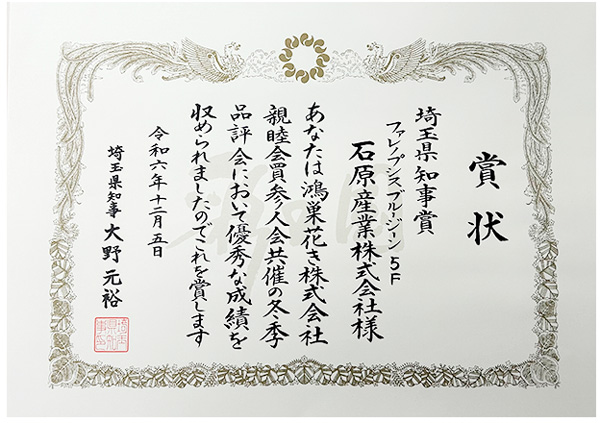 賞状
埼玉県知事賞
ファレノプシスブルージーン5F
石原産業株式会社様
あなたは鴻巣花き株式会社
親睦会買参人会共催の冬季
品評会において優秀な成績を
収められましたのでこれを賞します
令和六年十二月五日
埼玉県知事 大野元裕